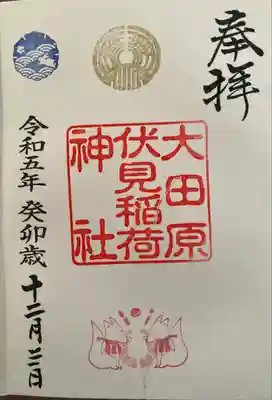 奉拝
大田原
伏見稲荷
神社
令和五年 癸卯歳 十二月二日